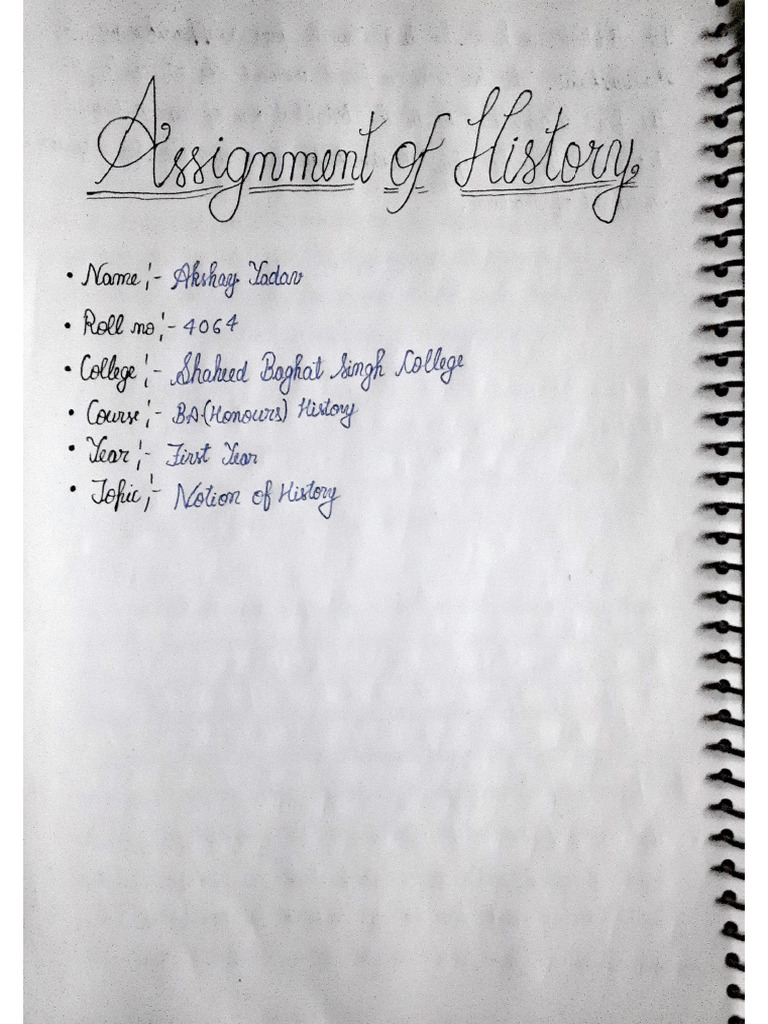 Assignment of History
• Name:- Akshay Yadav
• Roll no:- 4064
• College:- Shaheed Baghat Singh College
• Course:- BA(Honours) History
• Year:- First Year
• Topic:- Notion of History